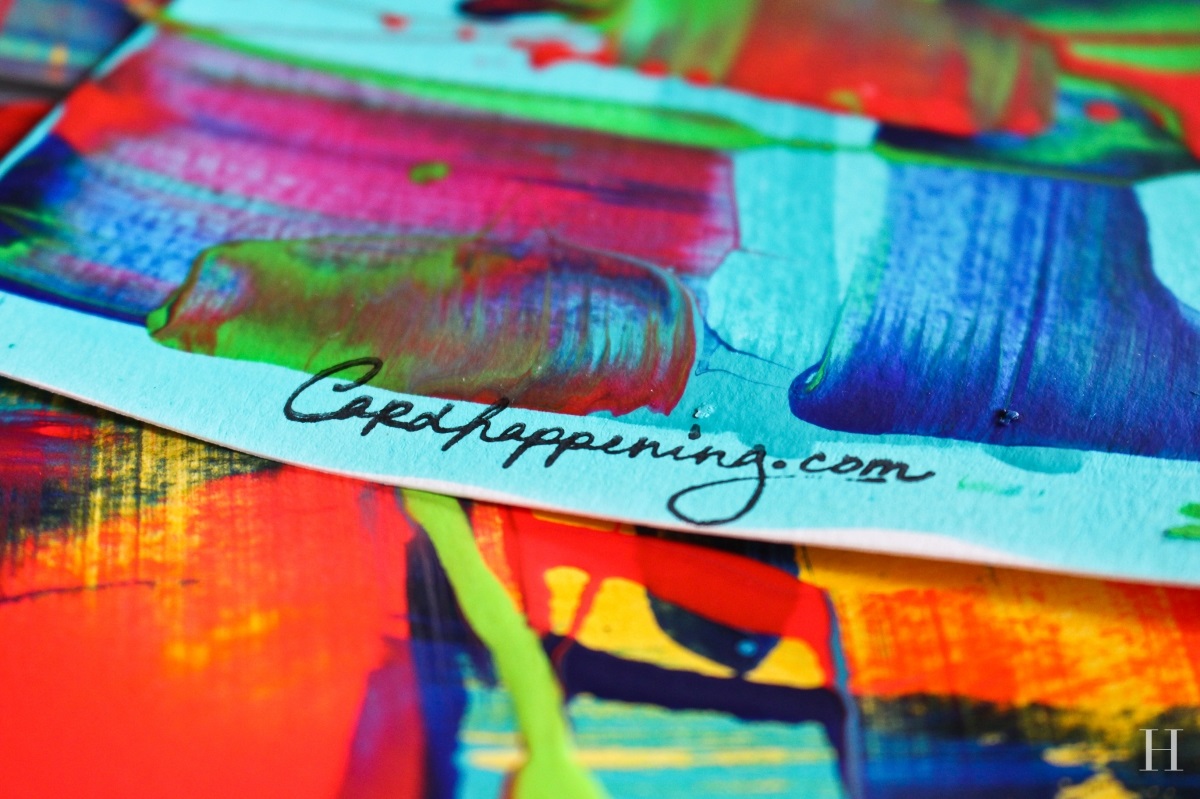 Cardhappening.com
H